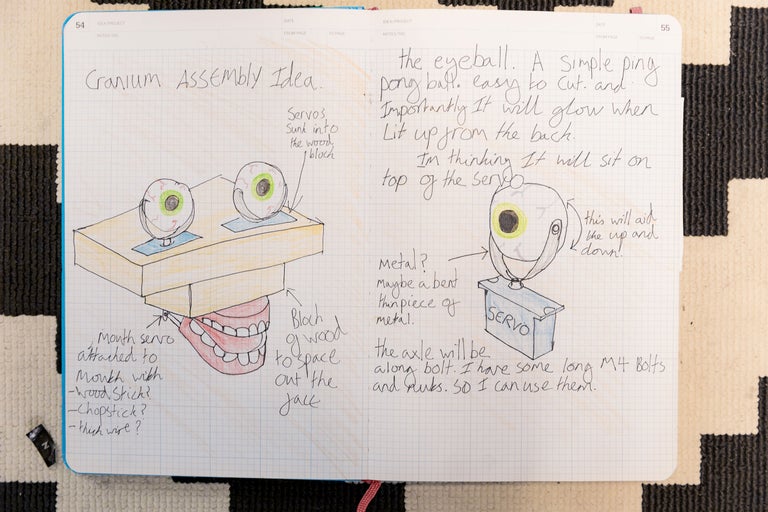 54
IDEA/PROJECT
DATE
NOTES/SIG
FROM PAGE
TO PAGE
Cranium Assembly Idea.
Servos
Sunk into
the wood
block
Mouth servo
attached to
Mouth with
- Wood Stick?
- Chopstick?
- thick wire?
Block
of wood
to space
out the
face
55
IDEA/PROJECT
DATE
NOTES/SIG
FROM PAGE
TO PAGE
the eyeball. A simple ping
pong ball. easy to cut. and
Importantly It will glow when
Lit up from the back.
Im thinking It will sit on
top of the servo
this will aid
the up and
down!
Metal?
Maybe a bent
thin piece of
metal.
SERVO
the axle will be
a long bolt. I have some long M4 Bolts
and nuts. SO I can use them.